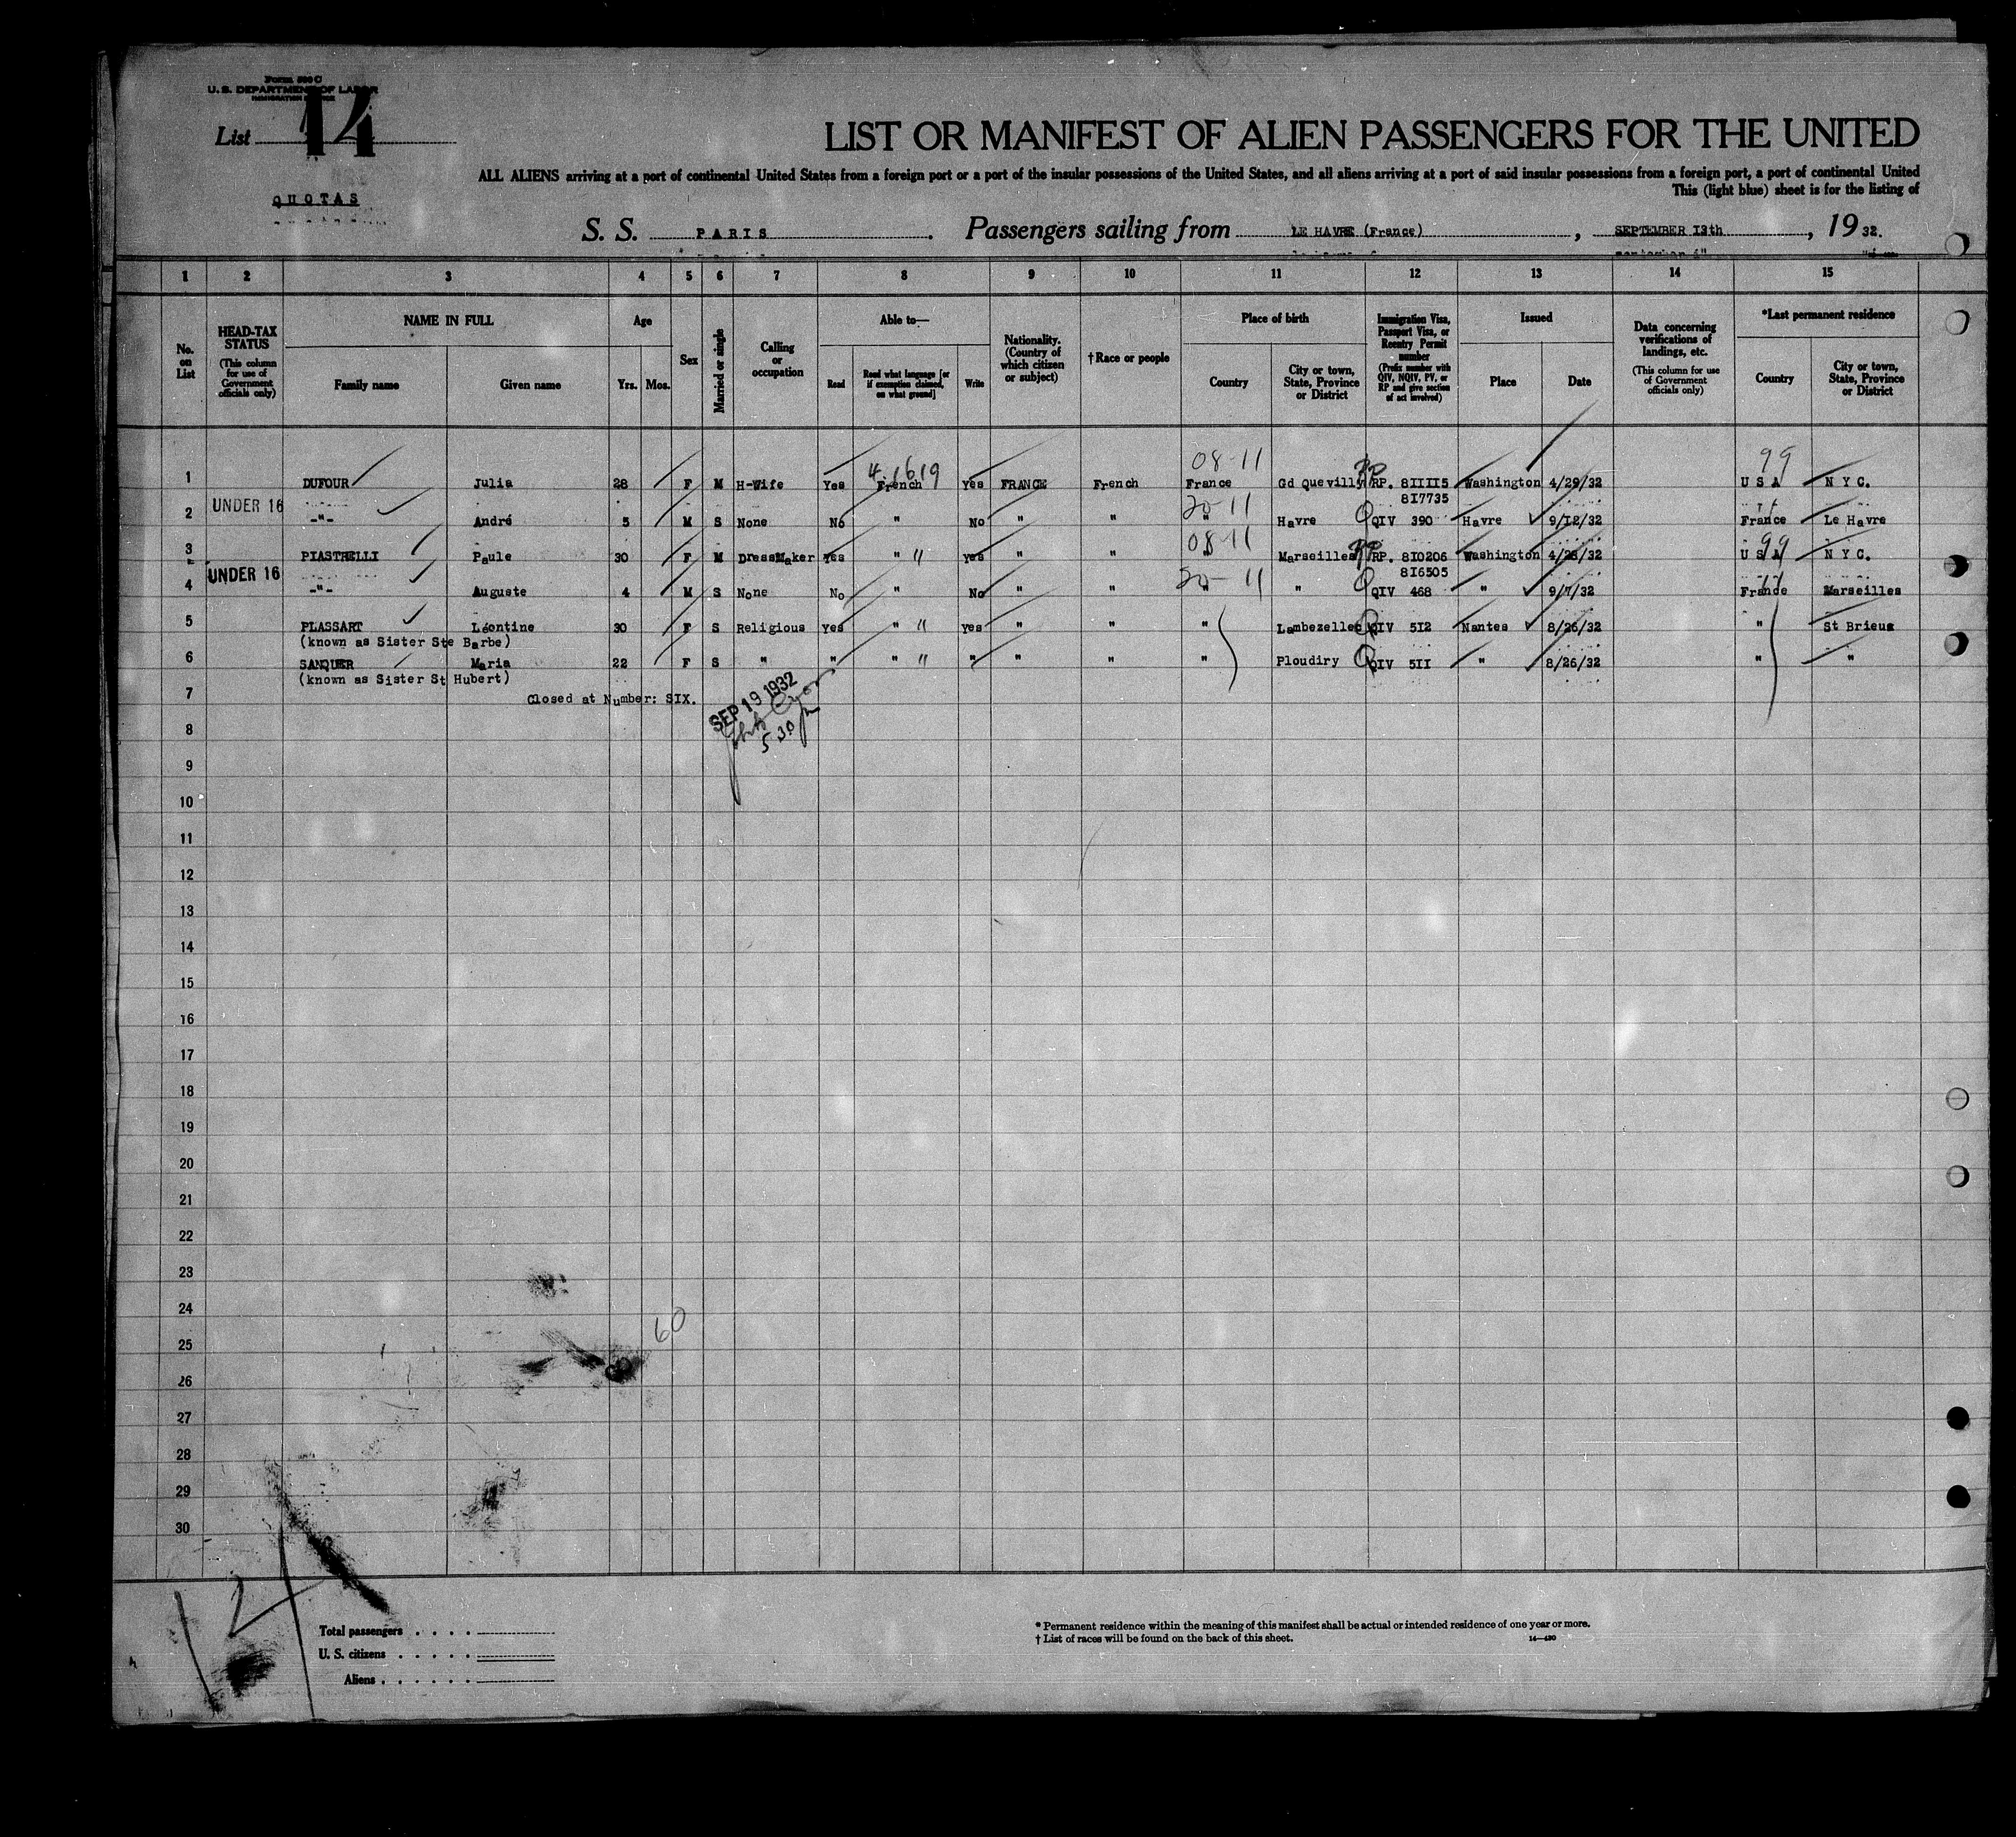 Form 500 C
U. S. DEPARTMENT OF LABOR
IMMIGRATION SERVICE
List 14
QUOTAS
LIST OR MANIFEST OF ALIEN PASSENGERS FOR THE UNITED
ALL ALIENS arriving at a port of continental United States from a foreign port or a port of the insular possessions of the United States, and all aliens arriving at a port of said insular possessions from a foreign port, a port of continental United
This (light blue) sheet is for the listing of
S. S. PARIS. Passengers sailing from LE HAVRE (France), SEPTEMBER I3th, 19 32.
1 2 3 4 5 6 7 8 9 10 11 12 13 14 15
No. on List
HEAD-TAX STATUS
(This column for use of Government officials only)
NAME IN FULL
Family name Given name
Age
Yrs. Mos.
Sex
Married or single
Calling or occupation
Able to—
Read Read what language [or if exemption claimed, on what ground] Write
Nationality. (Country of which citizen or subject)
† Race or people
Place of birth
Country City or town, State, Province or District
Immigration Visa, Passport Visa, or Reentry Permit number
(Prefix number with QIV, NQIV, PV, or RP and give section of act involved)
Issued
Place Date
Data concerning verifications of landings, etc.
(This column for use of Government officials only)
*Last permanent residence
Country City or town, State, Province or District
4.1619 08-11 99
1 DUFOUR Julia 28 F M H-Wife Yes French Yes FRANCE French France Gd Quevilly RP. 8IIII5 Washington 4/29/32 U S A N Y C.
8I7735
UNDER 16 20-11
2 -"- André 5 M S None No " No " " " Havre QIV 390 Havre 9/I2/32 France Le Havre
08-11 99
3 PIASTRELLI Paule 30 F M DressMaker Yes " " Yes " " " Marseilles RP. 8I0206 Washington 4/28/32 U S A N Y C.
8I6505
UNDER 16 20-11
4 -"- Auguste 4 M S None No " No " " " " QIV 468 " 9/7/32 France Marseilles
5 PLASSART Léontine 30 F S Religious Yes " " Yes " " " Lambezellec QIV 5I2 Nantes 8/26/32 " St Brieux
(known as Sister Ste Barbe)
6 SANQUER Maria 22 F S " " " " " " " " Ploudiry QIV 5II " 8/26/32 " "
(known as Sister St Hubert)
7 Closed at Number: SIX.
SEP 19 1932
5 30
8
9
10
11
12
13
14
15
16
17
18
19
20
21
22
23
24
60
25
26
27
28
29
30
Total passengers
U. S. citizens
Aliens
* Permanent residence within the meaning of this manifest shall be actual or intended residence of one year or more.
† List of races will be found on the back of this sheet. 14—430